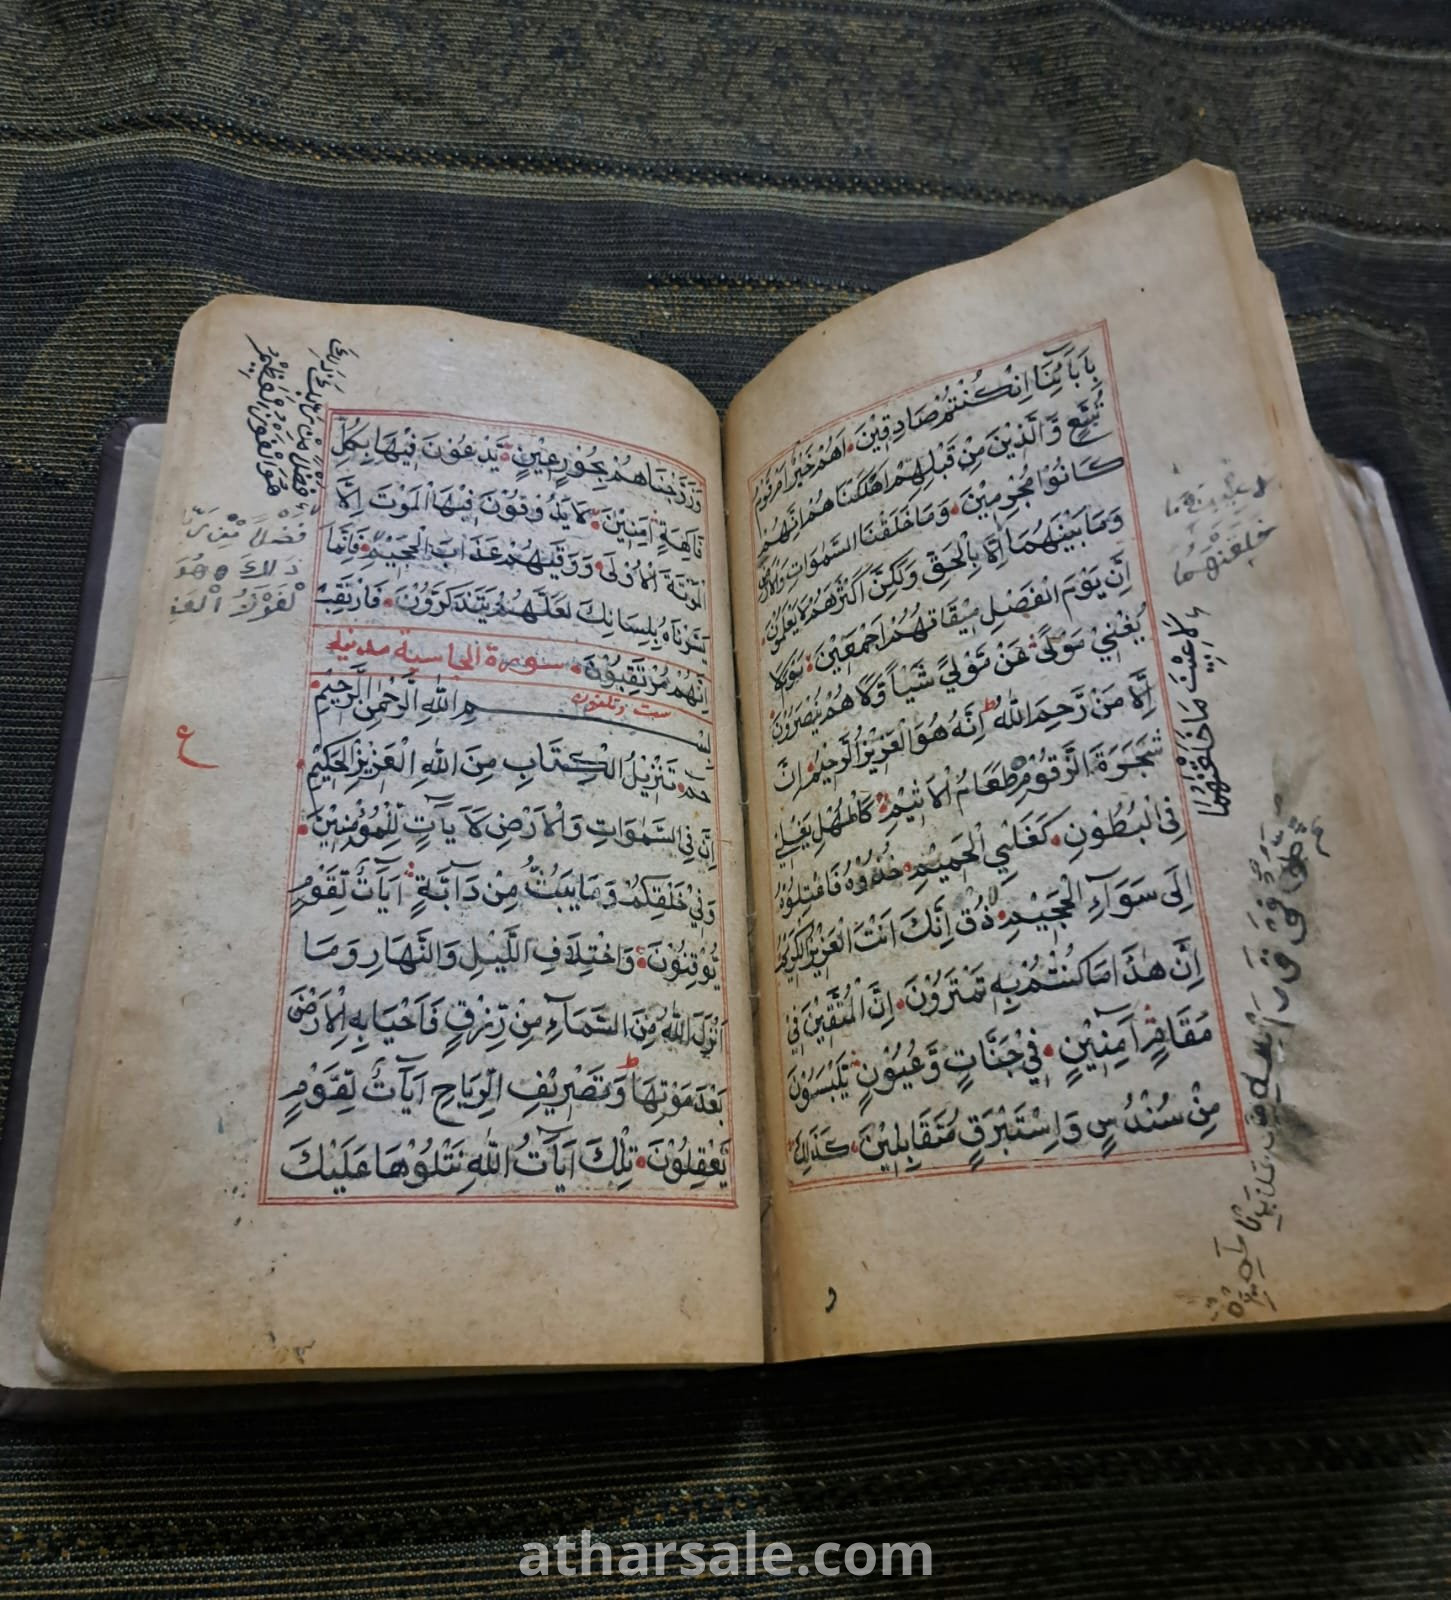 بِاٰبَآئِنَا اِنْ كُنْتُمْ صَادِقِيْنَ اَهُمْ خَيْرٌ اَمْ قَوْمُ
تُبَّعٍ وَّالَّذِيْنَ مِنْ قَبْلِهِمْ اَهْلَكْنَاهُمْ اِنَّهُمْ
كَانُوْا مُجْرِمِيْنَ وَمَا خَلَقْنَا السَّمٰوَاتِ وَالْاَرْضَ
وَمَا بَيْنَهُمَا اِلَّا بِالْحَقِّ وَلٰكِنَّ اَكْثَرَهُمْ لَا يَعْلَمُوْنَ
اِنَّ يَوْمَ الْفَصْلِ مِيْقَاتُهُمْ اَجْمَعِيْنَ يَوْمَ لَا
يُغْنِيْ مَوْلًى عَنْ مَّوْلًى شَيْأً وَّلَا هُمْ يُنْصَرُوْنَ
اِلَّا مَنْ رَّحِمَ اللّٰهُ اِنَّهُ هُوَ الْعَزِيْزُ الرَّحِيْمُ اِنَّ
شَجَرَةَ الزَّقُّوْمِ طَعَامُ الْاَثِيْمِ كَالْمُهْلِ يَغْلِيْ
فِى الْبُطُوْنِ كَغَلْيِ الْحَمِيْمِ خُذُوْهُ فَاعْتِلُوْهُ
اِلٰى سَوَآءِ الْجَحِيْمِ ذُقْ اِنَّكَ اَنْتَ الْعَزِيْزُ الْكَرِيْمُ
اِنَّ هٰذَا مَا كُنْتُمْ بِهِ تَمْتَرُوْنَ اِنَّ الْمُتَّقِيْنَ فِيْ
مَقَامٍ اَمِيْنٍ فِيْ جَنَّاتٍ وَّعُيُوْنٍ يَلْبَسُوْنَ
مِنْ سُنْدُسٍ وَاِسْتَبْرَقٍ مُتَقَابِلِيْنَ كَذٰلِكَ
لَاعِبِيْنَ مَا خَلَقْنٰهُمَا
خَلَقْنٰهُمَا
وَزَوَّجْنَاهُمْ بِحُوْرٍ عِيْنٍ يَدْعُوْنَ فِيْهَا بِكُلِّ
فَاكِهَةٍ اٰمِنِيْنَ لَا يَذُوْقُوْنَ فِيْهَا الْمَوْتَ اِلَّا
الْمَوْتَةَ الْاُوْلٰى وَوَقٰيهُمْ عَذَابَ الْجَحِيْمِ فَاِنَّمَا
يَسَّرْنَاهُ بِلِسَانِكَ لَعَلَّهُمْ يَتَذَكَّرُوْنَ فَارْتَقِبْ
اِنَّهُمْ مُرْتَقِبُوْنَ سورة الجاسية
ست وثلثون
بِسْمِ اللّٰهِ الرَّحْمٰنِ الرَّحِيْمِ
حٰمٓ تَنْزِيْلُ الْكِتَابِ مِنَ اللّٰهِ الْعَزِيْزِ الْحَكِيْمِ
اِنَّ فِي السَّمٰوَاتِ وَالْاَرْضِ لَاٰيَاتٍ لِّلْمُؤْمِنِيْنَ
وَفِيْ خَلْقِكُمْ وَمَا يَبُثُّ مِنْ دَآبَّةٍ اٰيَاتٌ لِّقَوْمٍ
يُّوْقِنُوْنَ وَاخْتِلَافِ اللَّيْلِ وَالنَّهَارِ وَمَا
اَنْزَلَ اللّٰهُ مِنَ السَّمَآءِ مِنْ رِّزْقٍ فَاَحْيَا بِهِ الْاَرْضَ
بَعْدَ مَوْتِهَا وَتَصْرِيْفِ الرِّيَاحِ اٰيَاتٌ لِّقَوْمٍ
يَّعْقِلُوْنَ تِلْكَ اٰيَاتُ اللّٰهِ نَتْلُوْهَا عَلَيْكَ
فَضْلًا مِّنْ رَّبِّ
ذٰلِكَ هُوَ
ع
atharsale.com